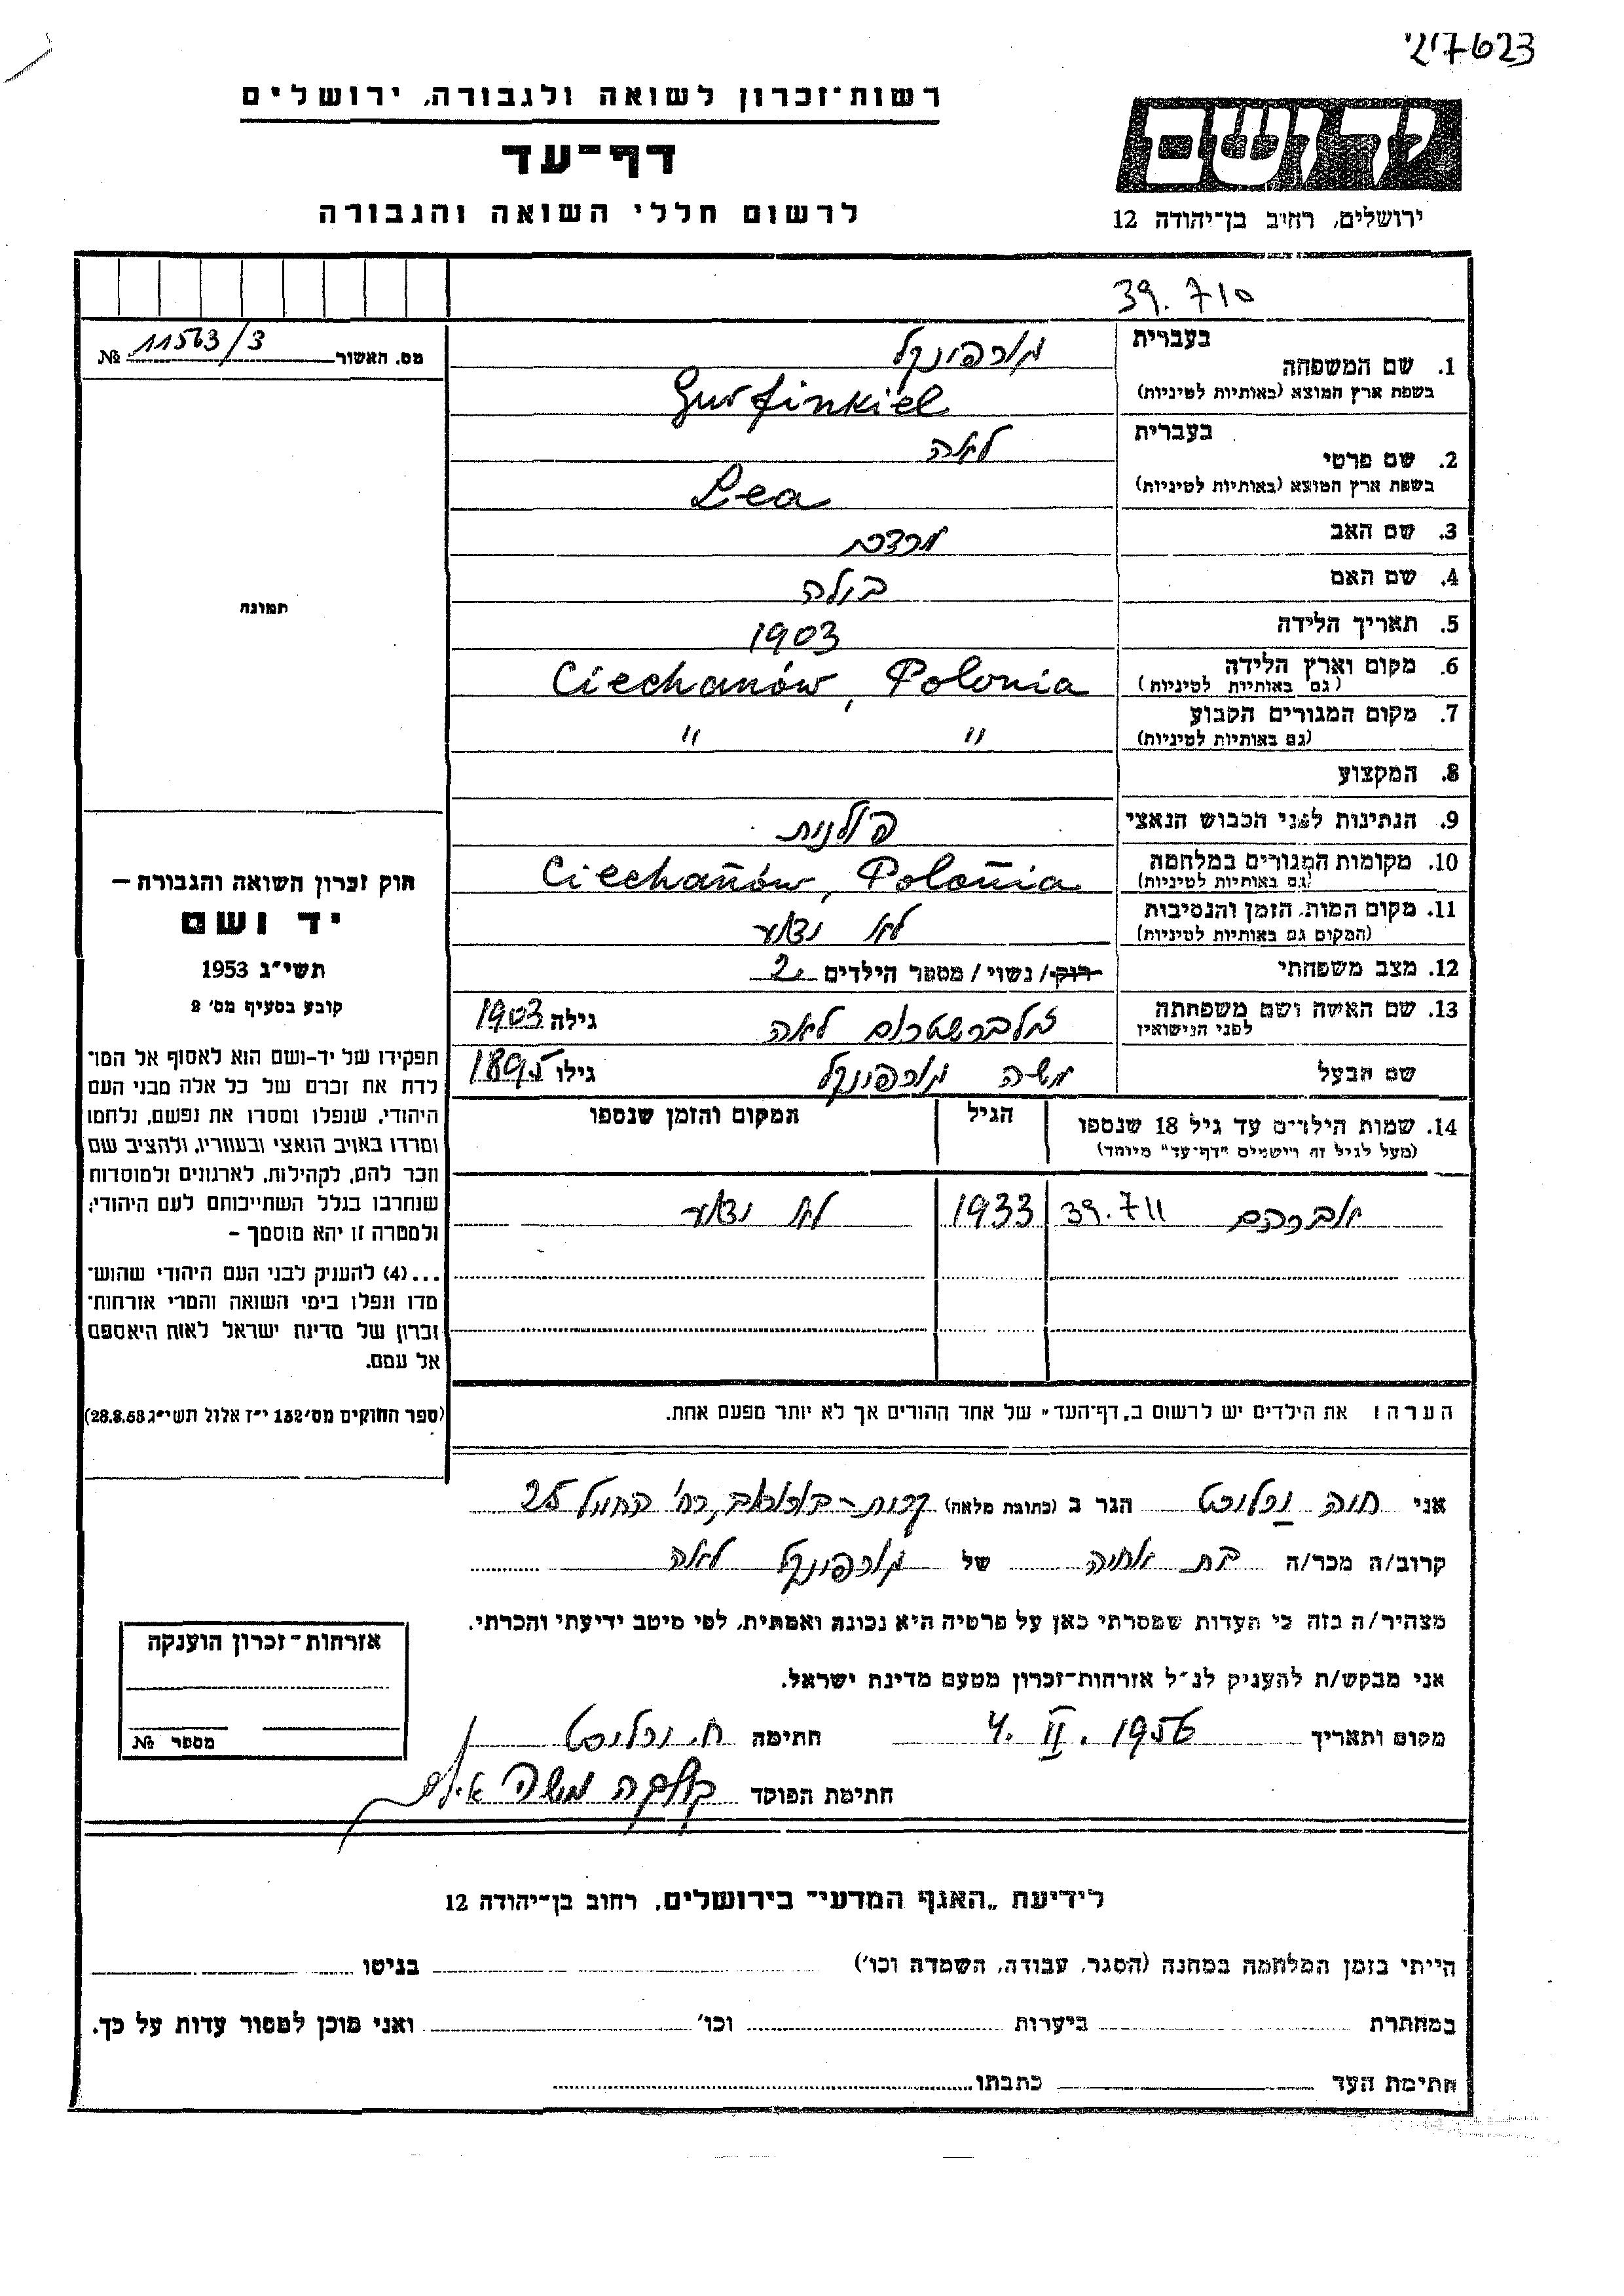 217623'
רשות־זכרון לשואה ולגבורה, ירושלים
דף־עד
לרשום חללי השואה והגבורה
יד ושם
ירושלים, רחוב בן־יהודה 12
39.710
מס. האשור 11563/3 №
תמונה
חוק זכרון השואה והגבורה –
יד ושם
תשי״ג 1953
קובע בסעיף מס׳ 2
תפקידו של יד-ושם הוא לאסוף אל המו־
לדת את זכרם של כל אלה מבני העם
היהודי, שנפלו ומסרו את נפשם, נלחמו
ומרדו באויב הנאצי ובעוזריו, ולהציב שם
וזכר להם, לקהילות, לארגונים ולמוסדות
שנחרבו בגלל השתייכותם לעם היהודי;
ולמטרה זו יהא מוסמך –
...(4) להעניק לבני העם היהודי שהוש־
מדו ונפלו בימי השואה והמרי אזרחות־
זכרון של מדינת ישראל לאות היאספם
אל עמם.
(ספר החוקים מס׳ 132 י״ז אלול תשי״ג 28.8.53)
בעברית גורפינקל
1. שם המשפחה
בשפת ארץ המוצא (באותיות לטיניות) Gurfinkiel
בעברית לאה
2. שם פרטי
בשפת ארץ המוצא (באותיות לטיניות) Lea
3. שם האב מרדכי
4. שם האם בילה
5. תאריך הלידה 1903
6. מקום וארץ הלידה Ciechanów, Polonia
(גם באותיות לטיניות)
7. מקום המגורים הקבוע " "
(גם באותיות לטיניות)
8. המקצוע
9. הנתינות לפני הכבוש הנאצי פולנית
10. מקומות המגורים במלחמה Ciechanów, Polonia
(גם באותיות לטיניות)
11. מקום המות, הזמן והנסיבות לא נודע
(המקום גם באותיות לטיניות)
12. מצב משפחתי רווק/ נשוי/ מספר הילדים 2
13. שם האשה ושם משפחתה זילברשטרום לאה גילה 1903
לפני הנישואין
שם הבעל משה גורפינקל גילו 1895
14. שמות הילדים עד גיל 18 שנספו הגיל המקום והזמן שנספו
(מעל לגיל זה רושמים "דף־עד" מיוחד)
אברהם 39.711 1933 לא נודע
הערה: את הילדים יש לרשום ב„דף־העד" של אחד ההורים אך לא יותר מפעם אחת.
אני חוה הגר ב (כתובת מלאה) 25
קרוב/ה מכר/ה בת אחיה של גורפינקל לאה
מצהיר/ה בזה כי העדות שמסרתי כאן על פרטיה היא נכונה ואמתית, לפי מיטב ידיעתי והכרתי.
אני מבקש/ת להעניק לנ״ל אזרחות־זכרון מטעם מדינת ישראל.
מקום ותאריך 4. II. 1956 חתימה ח.
חתימת הפוקד משה
אזרחות־זכרון הוענקה
מספר №
לידיעת „האגף המדעי" בירושלים, רחוב בן־יהודה 12
הייתי בזמן המלחמה במחנה (הסגר, עבודה, השמדה וכו׳) בגיטו
במחתרת ביערות וכו׳ ואני מוכן למסור עדות על כך.
חתימת העד כתבתו